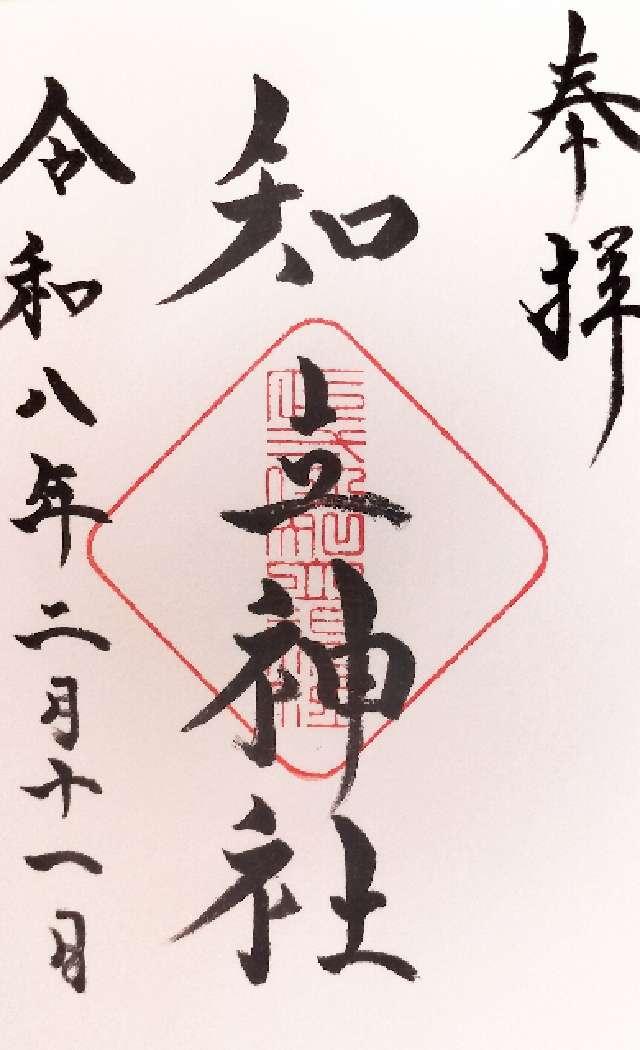 奉拝
知立神社
令和八年二月十一日